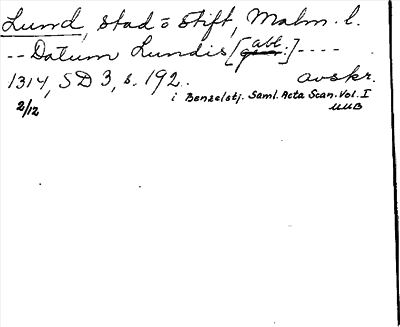 Lund, stad o stift, Malm. l.
-- Datum Lundis [abl.:] ----
1314, SD 3, s. 192. avskr.
2/12 i Benzelstj. Saml. Acta Scan. Vol. I
UUB